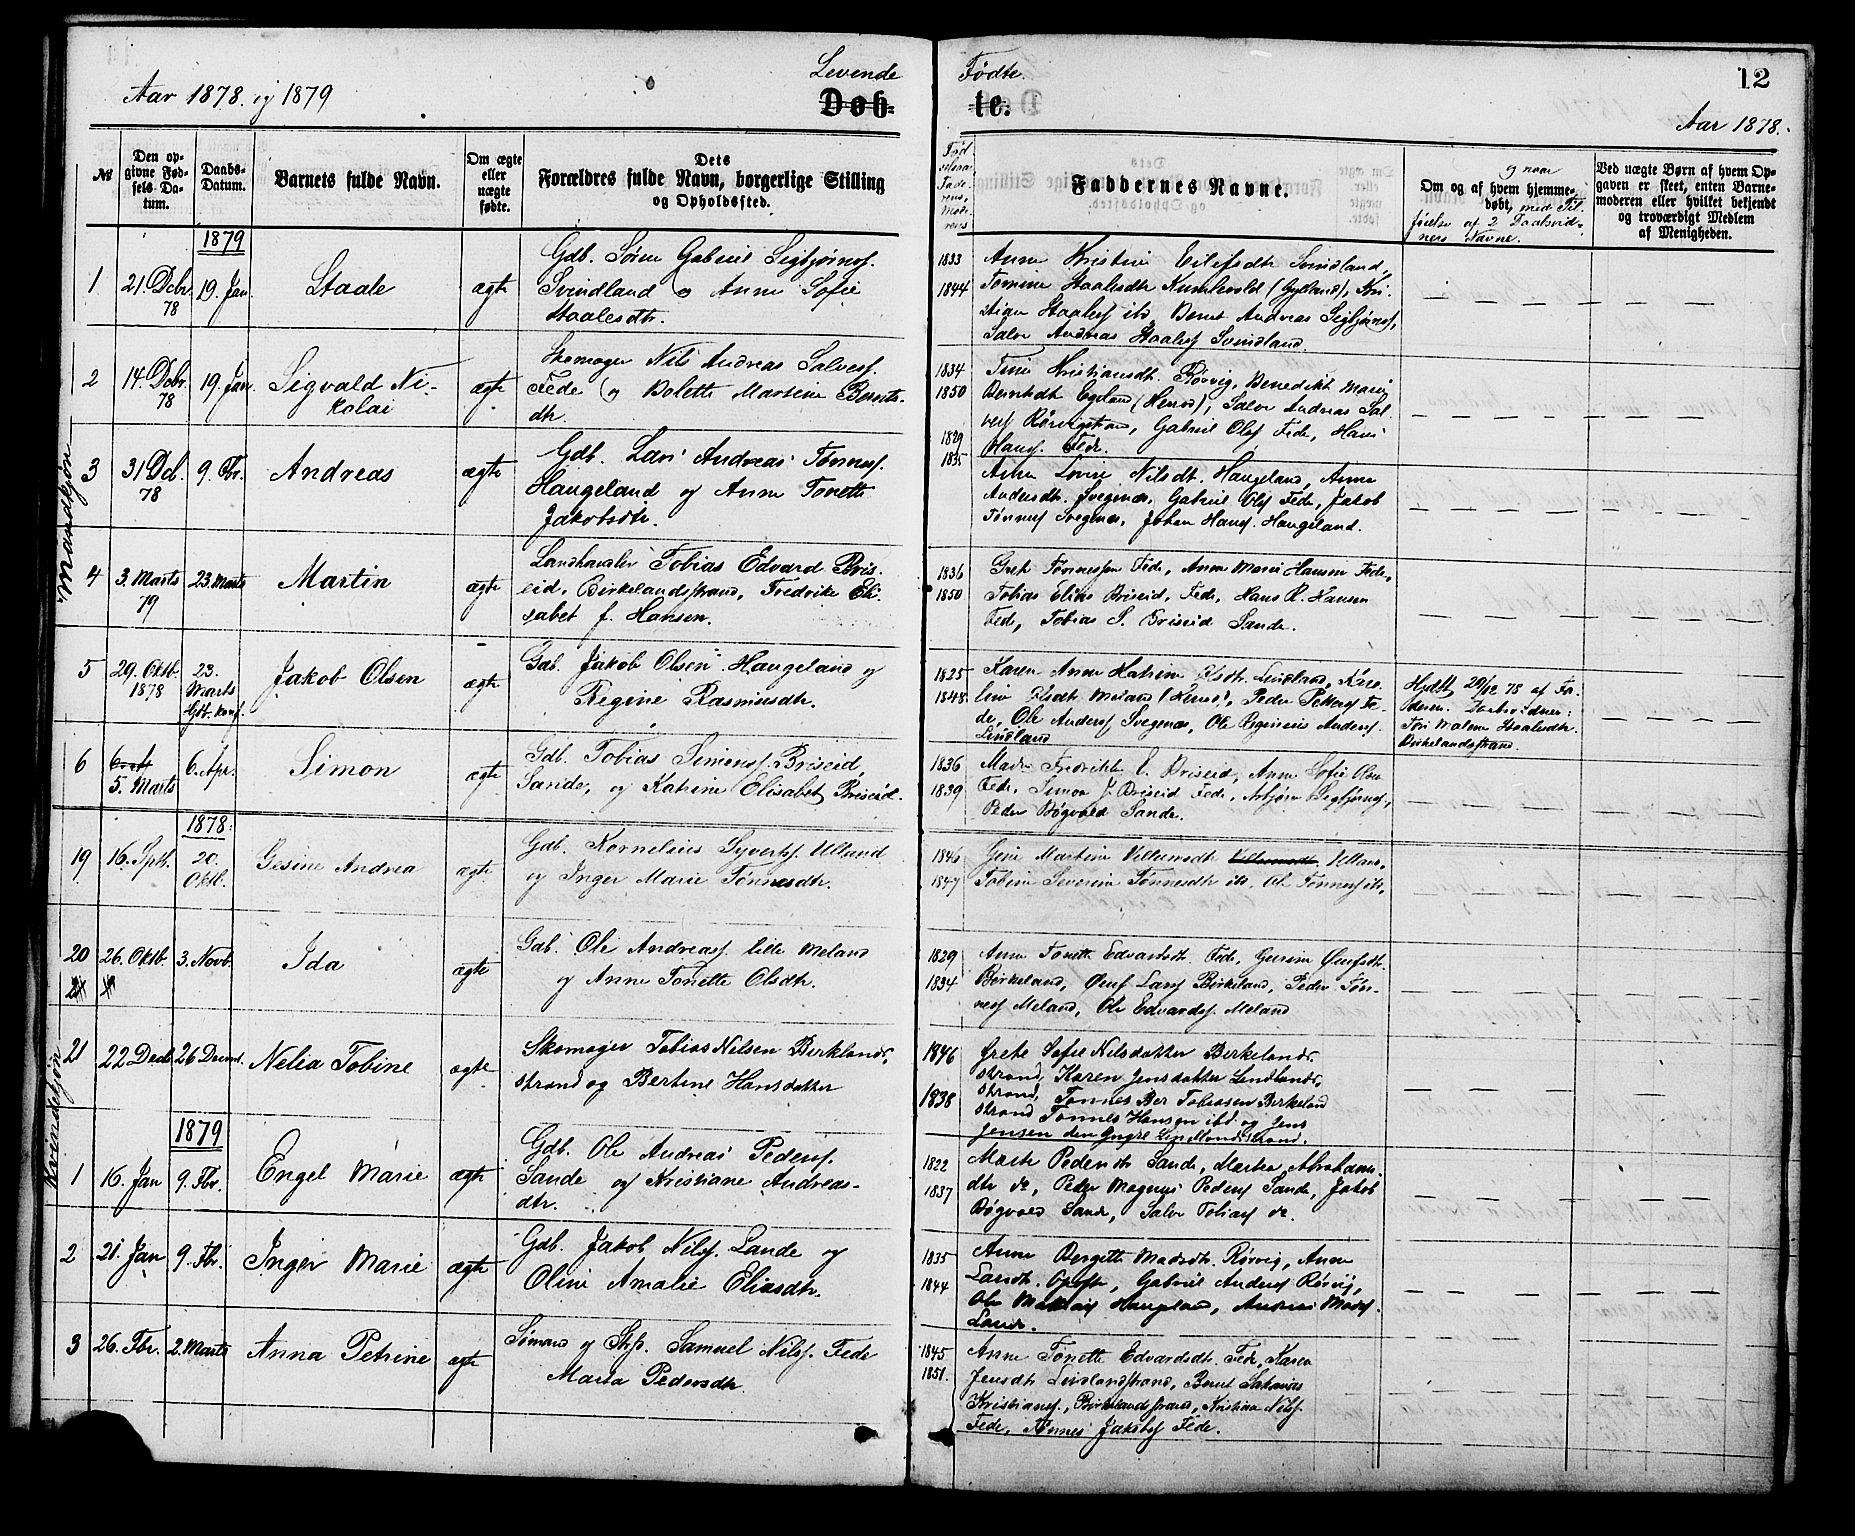 Aar 1878. og 1879
Levende Fødte.
Døbte.
12
Aar 1878.
No
Den opgivne Fødsels Datum.
Daabs-Datum.
Barnets fulde Navn.
Om ægte eller uægte fødte.
Dets Forældres fulde Navn, borgerlige Stilling og Opholdssted.
Faddernes Navne.
og naar
Om og af hvem hjemmedøbt, med Til-
føielse af 2 Daabsvid-
ners Navne.
Ved uægte Børn af hvem Opgaven er skeet, enten Barnemoderen eller hvilket bekjendt og troværdigt Medlem af Menigheden.
Mandkjøn
1879
1 21. Dcbr. 78 19. Jan Staale ægte
Gdb. Søren Gabriel Sigbjørnsf.
Svindland og Anne Sofie
Staalesdtr.
1833
1844
Anne Kristine Eilefsdtr Svindland,
Tomine Staalesdtr Kumlevold (Gylland), Kri-
stian Staalesf ibd, Bernt Andreas Sigbjørnsf,
Salve Andreas Staalesf Svindland.
2 14. Dcbr. 78 19. Jan Sigvald Ni-
kolai ægte
Skomager Nils Andreas Salvesf.
Fede og Bolette Martine Bernts-
dtr.
1834
1850
Tine Kristiansdtr. Rørvig, Benedikte Marie
Berntsdtr Egeland (Herred), Salve Andreas Sal-
vesf Rørvigstran, Gabriel Olsf Fede, Hans
Hansf. Fede.
3 31 Dcb. 78 9. Fbr. Andreas ægte
Gdb. Lars Andreas Tønnesf.
Haugeland og Anne Tonette
Jakobsdtr.
1829
1835
Anne Lovise Nilsdtr. Haugeland, Anne
Andersdtr. Svegenæs, Gabriel Olsf Fede, Jakob
Tønnesf Svegenæs, Johan Hansf. Haugeland.
4 3. Marts 79 23. Marts Martin ægte
Landhandler Tobias Edvard Bris-
eid, Birkelandsstrand, Fredrike Eli-
sabet f. Hansen.
1836
1850
Grete Tønnessen Fede, Anne Marie Hansen Fede,
Tobias Elias Briseid, Fede, Hans R. Hansen
Fede, Tobias S. Briseid Sande.
5 29. Oktb. 1878 23. Marts Jakob Olsen ægte
Gdb. Jakob Olsen Haugeland og
Regine Rasmusdtr.
1825
1848
Karen Anne Katrine Olsdtr. Lindland, Karo-
line Olsdtr Meland (Herred), Peder Pedersf Fe-
de, Ole Andersf Svegenæs, Ole Reginius Andersf
Lindland
Hjdbt 29/12 78 af Fa-
deren. Daabsvidner:
Tone Malene Staalesdtr.
Birkelandsstrand.
6 5. Marts 6. Apr. Simon ægte
Gdb. Tobias Simonsf. Briseid,
Sande, og Katrine Elisabet Briseid.
1836
1839
Mad. Fredrikke E. Briseid, Anne Sofie Olsen
Fede, Simon J. Briseid Fede, Asbjørn Sigbjørnsf,
Peder Bøgvald Sande.
Kvindekjøn
1878:
19 16. Sptb. 20. Oktb. Gesine Andrea ægte
Gdb. Kornelius Syvertsf. Ulland
og Inger Marie Tønnesdtr.
1846
1847
Gine Martine Villumsdtr Ulland,
Tobine Severine Tønnesdtr ibd, Ole Tønnesf ibd,
20 26. Oktb. 3. Novb. Ida ægte
Gdb. Ole Andreasf. lille Meland
og Anne Tonette Olsdtr.
1829
1834
Anne Tonette Edvardsdtr Fede, Gurine Olufsdtr.
Birkeland, Oluf Larsf Birkeland, Peder Tøn-
nesf Meland, Ole Edvardsf. Meland
21 22 Decb 26 Decmb. Nelia Tobine ægte
Skomager Tobias Nilsen Birklands-
strand og Bertine Hansdatter
1846
1838
Grete Sofie Nilsdatter Birkelands-
strand, Karen Jensdatter Lindlands-
strand, Tønnes Ber Tobiassen Birkeland
strand Tønnes Hansen ibd og Jens
Jensen den Yngre Lindlandsstrand.
1879
1 16. Jan 9. Fbr. Engel Marie ægte
Gdb. Ole Andreas Pedersf.
Sande og Kristiane Andreas-
dtr.
1822
1837
Marte Pedersdtr Sande, Martea Abrahams-
dtr do, Peder Magnus Pedersf Sande, Jakob
Bøgvald Sande, Salve Tobiasf do.
2 21. Jan 9. Fbr. Inger Marie ægte
Gdb. Jakob Nilsf. Lande og
Oline Amalie Eliasdtr.
1835
1844
Anne Bergitte Madsdtr. Rørvig, Anne
Larsdtr. Opofte, Gabriel Andersf Rørvig,
Ole Mathiasf Haugeland, Andreas Madsf.
Lande.
3 26. Fbr. 2. Marts Anna Petrine ægte
Sømand og Strfs. Samuel Nilsf. Fede
Marta Pedersdtr.
1845
1851.
Anne Tonette Edvardsdtr. Fede, Karen
Jensdtr Lindlandsstrand, Bernt Sakarias
Kristiansf., Birkelandsstrand, Kristian Nilsf.
Fede, Tønnes Jakobsf Fede.